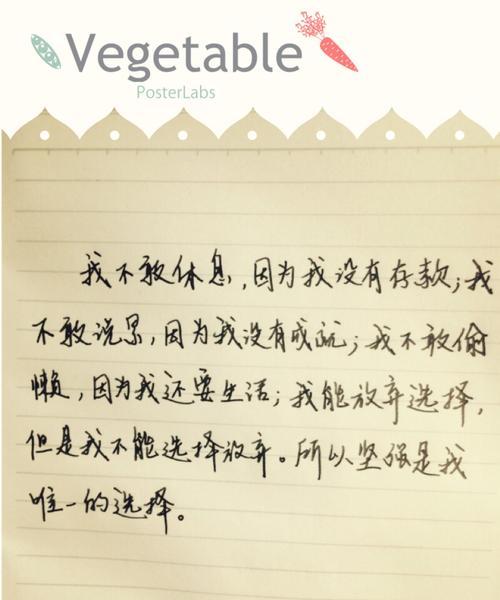 Vegetable
PosterLabs
我不敢休息，因为我没有存款；我
不敢说累，因为我没有成就；我不敢偷
懒，因为我还要生活；我能放弃选择，
但是我不能选择放弃。所以坚强是我
唯一的选择。